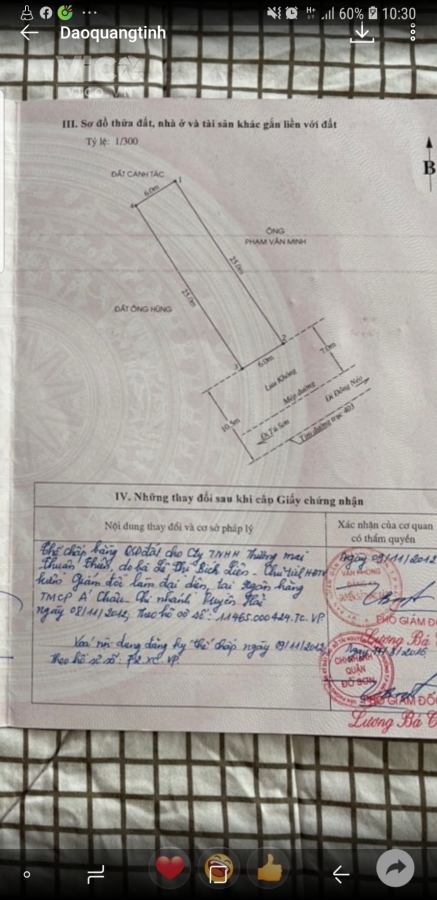 60% 10:30
Daoquangtinh
III. Sơ đồ thửa đất, nhà ở và tài sản khác gắn liền với đất
Tỷ lệ: 1/300
B
ĐẤT CANH TÁC
6.0m
1
4
ÔNG
PHẠM VĂN MINH
25.0m
25.0m
ĐẤT ÔNG HÙNG
2
3
6.0m
7.0m
Lưu Không
Mép đường
Đi Đồng Nẻo
10.5m
Đi Từ Sơn
Tim đường trục 403
IV. Những thay đổi sau khi cấp Giấy chứng nhận
Nội dung thay đổi và cơ sở pháp lý
Xác nhận của cơ quan
có thẩm quyền
Thế chấp bằng QSDđất cho Cty TNHH Thương mại
Thuấn Thiên, do bà Lê Thị Bích Liên - Chủ tịch HĐTV
kiêm Giám đốc làm đại diện, tại Ngân hàng
TMCP Á Châu. Chi nhánh Duyên Hải
ngày 08/11/2012, Theo hồ sơ số: 11465.000424.TC.VP
Ngày 09/11/2012
VĂN PHÒNG
PHÓ GIÁM Đ
Lương Bá
Xoá nội dung đăng ký thế chấp ngày 09/11/2012
Theo hồ sơ số: 72.XC.VP.
CHI NHÁNH
QUẬN
ĐỒ SƠN
PHÓ GIÁM ĐỐ
Lương Bá